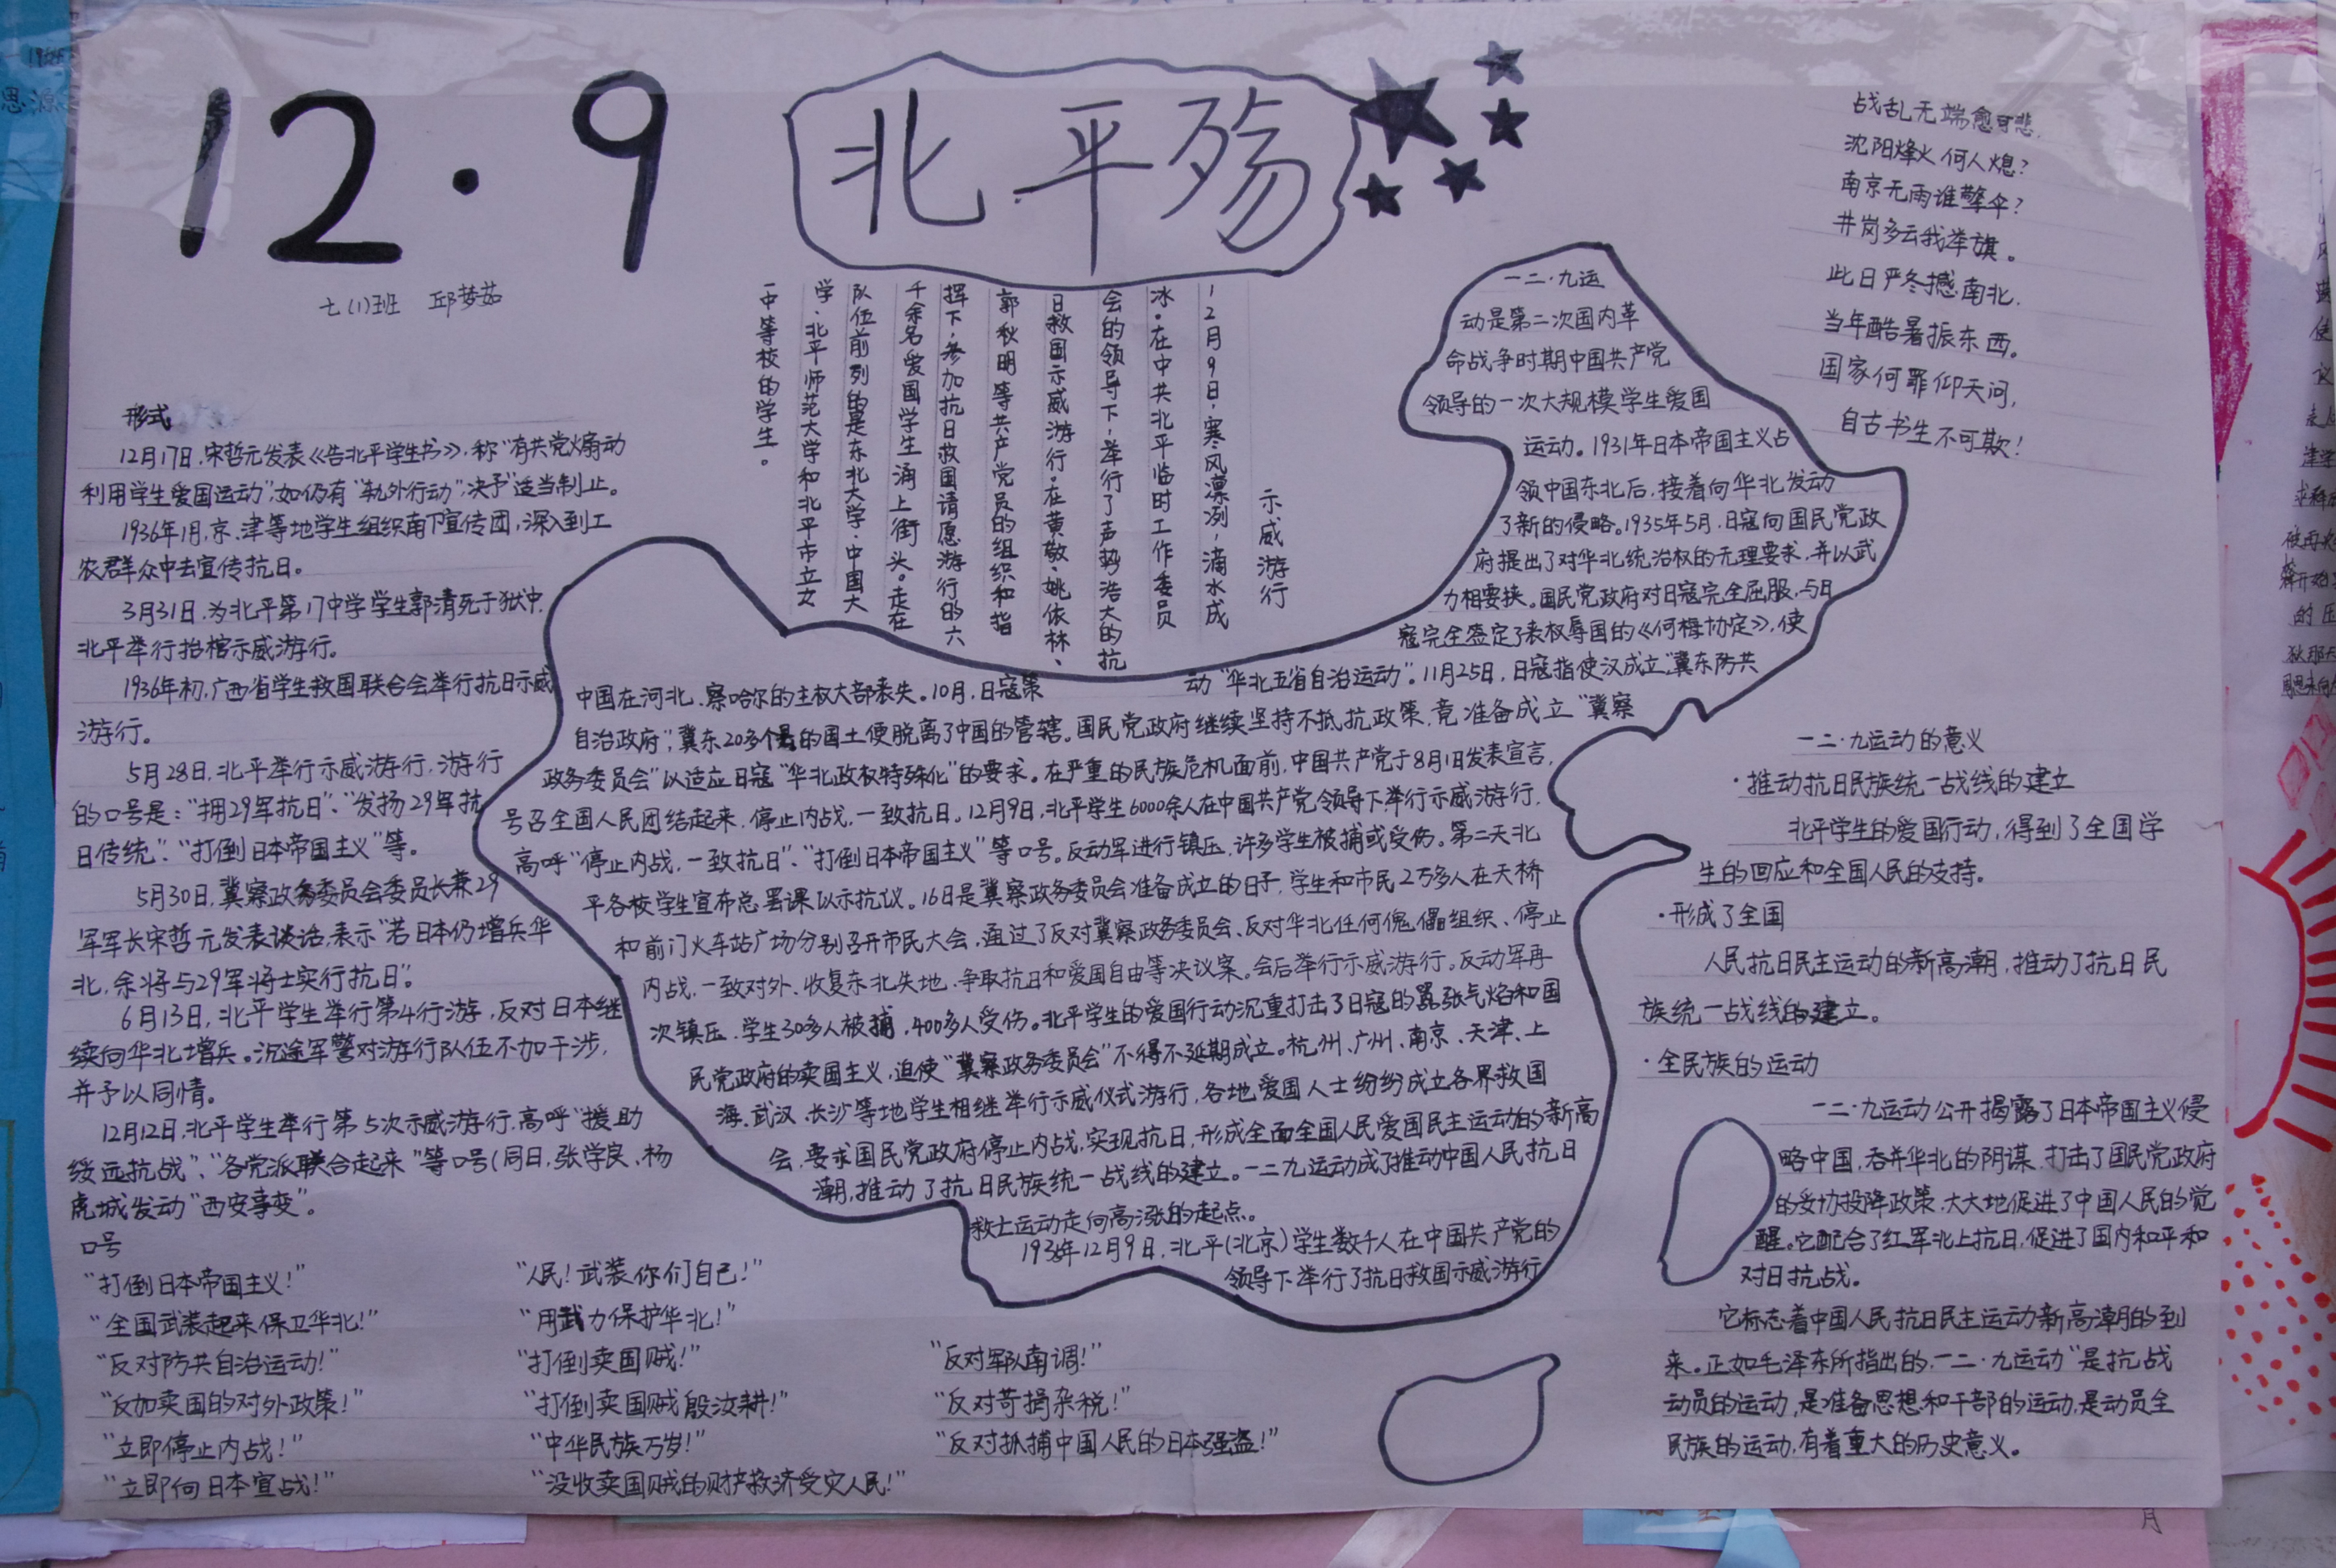 12·9
北平殇
七(1)班 邱梦茹
形式
12月17日,宋哲元发表《告北平学生书》,称“有共党火煽动
利用学生爱国运动”,如仍有“轨外行动”,决予“适当制止。
1936年1月,京、津等地学生组织南下宣传团,深入到工
农群众中去宣传抗日。
3月31日,为北平第17中学学生郭清死于狱中,
北平举行抬棺示威游行。
1936年初,广西省学生救国联合会举行抗日示威
游行。
5月28日,北平举行示威游行,游行
的口号是:“拥29军抗日”、“发扬29军抗
日传统”、“打倒日本帝国主义”等。
5月30日,冀察政务委员会委员长兼29
军军长宋哲元发表谈话,表示“若日本仍增兵华
北,余将与29军将士实行抗日”。
6月13日,北平学生举行第4行游,反对日本继
续向华北增兵。沉途军警对游行队伍不加干涉,
并予以同情。
12月12日,北平学生举行第5次示威游行,高呼“援助
绥远抗战”、“各党派联合起来”等口号(同日,张学良、杨
虎城发动“西安事变”。
口号
“打倒日本帝国主义!”
“全国武装起来保卫华北!”
“反对防共自治运动!”
“反加卖国的对外政策!”
“立即停止内战!”
“立即向日本宣战!”
“人民!武装你们自己!”
“用武力保护华北!”
“打倒卖国贼!”
“打倒卖国贼殷汝耕!”
“中华民族万岁!”
“没收卖国贼的财产救济受灾人民!”
“反对军队南调!”
“反对苛捐杂税!”
“反对抓捕中国人民的日本强盗!”
示威游行
12月9日,寒风凛冽,滴水成
冰。在中共北平临时工作委员
会的领导下,举行了声势浩大的抗
日救国示威游行。在黄敬、姚依林、
郭秋明等共产党员的组织和指
挥下,参加抗日救国请愿游行的六
千余名爱国学生涌上街头。走在
队伍前列的是东北大学、中国大
学、北平师范大学和北平市立女
一中等校的学生。
一二·九运
动是第二次国内革
命战争时期中国共产党
领导的一次大规模学生爱国
运动。1931年日本帝国主义占
领中国东北后,接着向华北发动
了新的侵略。1935年5月,日寇向国民党政
府提出了对华北统治权的无理要求,并以武
力相要挟。国民党政府对日寇完全屈服,与日
寇完全签定了丧权辱国的《何梅协定》,使
中国在河北、察哈尔的主权大部丧失。10月,日寇策
动“华北五省自治运动”。11月25日,日寇指使汉成立“冀东防共
自治政府”,冀东20多个县的国土便脱离了中国的管辖。国民党政府继续坚持不抵抗政策,竟准备成立“冀察
政务委员会”以适应日寇“华北政权特殊化”的要求。在严重的民族危机面前,中国共产党于8月1日发表宣言,
号召全国人民团结起来,停止内战,一致抗日。12月9日,北平学生6000余人在中国共产党领导下举行示威游行,
高呼“停止内战,一致抗日”、“打倒日本帝国主义”等口号。反动军进行镇压,许多学生被捕或受伤。第二天北
平各校学生宣布总罢课以示抗议。16日是冀察政务委员会准备成立的日子,学生和市民2万多人在天桥
和前门火车站广场分别召开市民大会,通过了反对冀察政务委员会、反对华北任何傀儡组织、停止
内战,一致对外、收复东北失地、争取抗日和爱国自由等决议案。会后举行示威游行。反动军再
次镇压,学生30多人被捕,400多人受伤。北平学生的爱国行动沉重打击了日寇的嚣张气焰和国
民党政府的卖国主义,迫使“冀察政务委员会”不得不延期成立。杭州、广州、南京、天津、上
海、武汉、长沙等地学生相继举行示威仪式游行,各地爱国人士纷纷成立各界救国
会,要求国民党政府停止内战,实现抗日,形成全面全国人民爱国民主运动的新高
潮,推动了抗日民族统一战线的建立。一二九运动成了推动中国人民抗日
救士运动走向高涨的起点。
1936年12月9日,北平(北京)学生数千人在中国共产党的
领导下举行了抗日救国示威游行
战乱无端愈可悲,
沈阳烽火何人熄?
南京无雨谁擎伞?
井岗多云我举旗。
此日严冬撼南北,
当年酷暑振东西。
国家何罪仰天问,
自古书生不可欺!
一二·九运动的意义
·推动抗日民族统一战线的建立
北平学生的爱国行动,得到了全国学
生的回应和全国人民的支持。
·形成了全国
人民抗日民主运动的新高潮,推动了抗日民
族统一战线的建立。
·全民族的运动
一二·九运动公开揭露了日本帝国主义侵
略中国,吞并华北的阴谋,打击了国民党政府
的妥协投降政策,大大地促进了中国人民的觉
醒。它配合了红军北上抗日,促进了国内和平和
对日抗战。
它标志着中国人民抗日民主运动新高潮的到
来。正如毛泽东所指出的,一二·九运动“是抗战
动员的运动,是准备思想和干部的运动,是动员全
民族的运动,有着重大的历史意义。